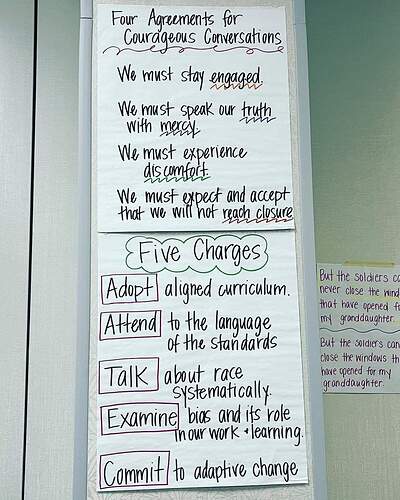 Four Agreements for
Courageous Conversations
We must stay engaged.
We must speak our truth
with mercy.
We must experience
discomfort.
We must expect and accept
that we will not reach closure
Five Charges
Adopt aligned curriculum.
Attend to the language
of the standards
Talk about race
systematically.
Examine bias and its role
in our work + learning.
Commit to adaptive change
But the soldiers
never close the
that have opened
my granddaughter.
But the soldiers can
close the windows
have opened for my
granddaughter.